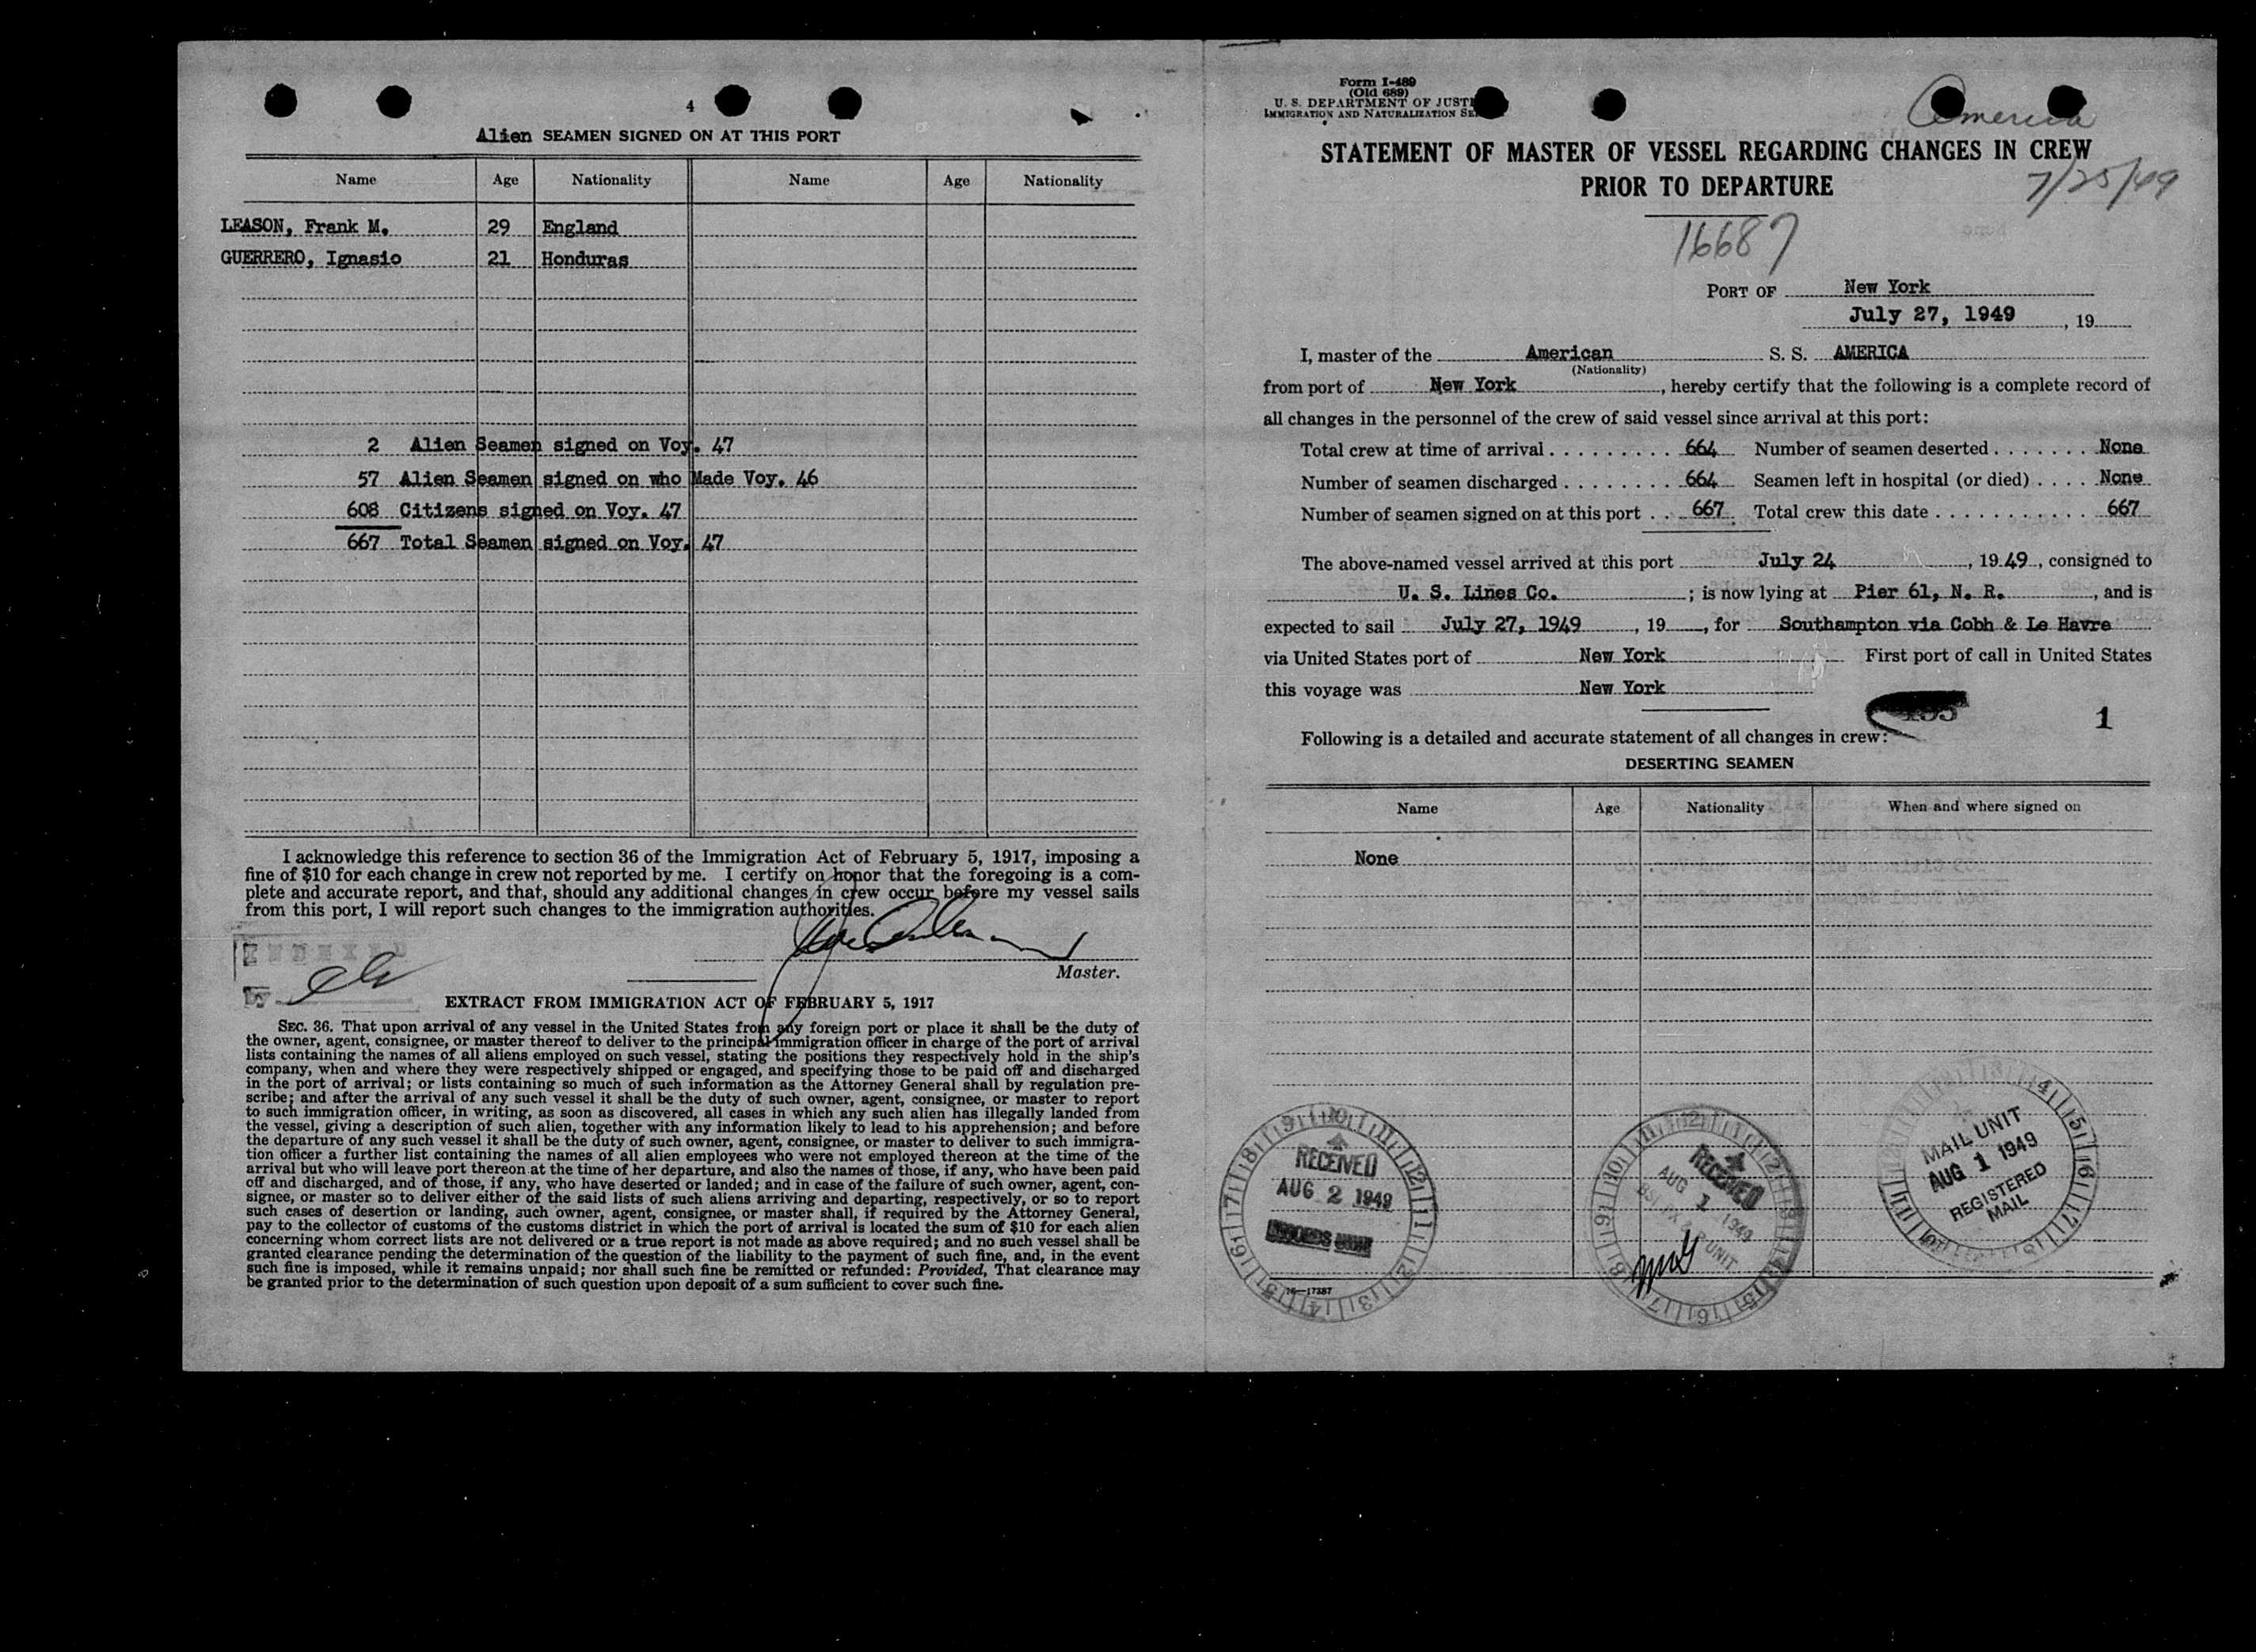 4
Alien SEAMEN SIGNED ON AT THIS PORT
Name Age Nationality Name Age Nationality
LEASON, Frank M. 29 England
GUERRERO, Ignasio 21 Honduras
2 Alien Seamen signed on Voy. 47
57 Alien Seamen signed on who Made Voy. 46
608 Citizens signed on Voy. 47
667 Total Seamen signed on Voy. 47
I acknowledge this reference to section 36 of the Immigration Act of February 5, 1917, imposing a
fine of $10 for each change in crew not reported by me. I certify on honor that the foregoing is a com-
plete and accurate report, and that, should any additional changes in crew occur before my vessel sails
from this port, I will report such changes to the immigration authorities.
INDEXED
by
Master.
EXTRACT FROM IMMIGRATION ACT OF FEBRUARY 5, 1917
SEC. 36. That upon arrival of any vessel in the United States from any foreign port or place it shall be the duty of
the owner, agent, consignee, or master thereof to deliver to the principal immigration officer in charge of the port of arrival
lists containing the names of all aliens employed on such vessel, stating the positions they respectively hold in the ship's
company, when and where they were respectively shipped or engaged, and specifying those to be paid off and discharged
in the port of arrival; or lists containing so much of such information as the Attorney General shall by regulation pre-
scribe; and after the arrival of any such vessel it shall be the duty of such owner, agent, consignee, or master to report
to such immigration officer, in writing, as soon as discovered, all cases in which any such alien has illegally landed from
the vessel, giving a description of such alien, together with any information likely to lead to his apprehension; and before
the departure of any such vessel it shall be the duty of such owner, agent, consignee, or master to deliver to such immigra-
tion officer a further list containing the names of all alien employees who were not employed thereon at the time of the
arrival but who will leave port thereon at the time of her departure, and also the names of those, if any, who have been paid
off and discharged, and of those, if any, who have deserted or landed; and in case of the failure of such owner, agent, con-
signee, or master so to deliver either of the said lists of such aliens arriving and departing, respectively, or so to report
such cases of desertion or landing, such owner, agent, consignee, or master shall, if required by the Attorney General,
pay to the collector of customs of the customs district in which the port of arrival is located the sum of $10 for each alien
concerning whom correct lists are not delivered or a true report is not made as above required; and no such vessel shall be
granted clearance pending the determination of the question of the liability to the payment of such fine, and, in the event
such fine is imposed, while it remains unpaid; nor shall such fine be remitted or refunded: Provided, That clearance may
be granted prior to the determination of such question upon deposit of a sum sufficient to cover such fine.
Form I-489
(Old 689)
U. S. DEPARTMENT OF JUSTI
IMMIGRATION AND NATURALIZATION SE
America
STATEMENT OF MASTER OF VESSEL REGARDING CHANGES IN CREW
PRIOR TO DEPARTURE
7/25/49
16687
PORT OF New York
July 27, 1949, 19
I, master of the American S. S. AMERICA
(Nationality)
from port of New York, hereby certify that the following is a complete record of
all changes in the personnel of the crew of said vessel since arrival at this port:
Total crew at time of arrival . . . . . . . . . 664 Number of seamen deserted . . . . . . . None
Number of seamen discharged . . . . . . . . 664 Seamen left in hospital (or died) . . . . None
Number of seamen signed on at this port . . 667 Total crew this date . . . . . . . . . . . 667
The above-named vessel arrived at this port July 24, 1949, consigned to
U. S. Lines Co. ; is now lying at Pier 61, N. R., and is
expected to sail July 27, 1949, 19, for Southampton via Cobh & Le Havre
via United States port of New York First port of call in United States
this voyage was New York
1
Following is a detailed and accurate statement of all changes in crew:
DESERTING SEAMEN
Name Age Nationality When and where signed on
None
RECEIVED
AUG 2 1949
RECEIVED
AUG 1 1949
UNIT
MAIL UNIT
AUG 1 1949
REGISTERED
MAIL
16—17387